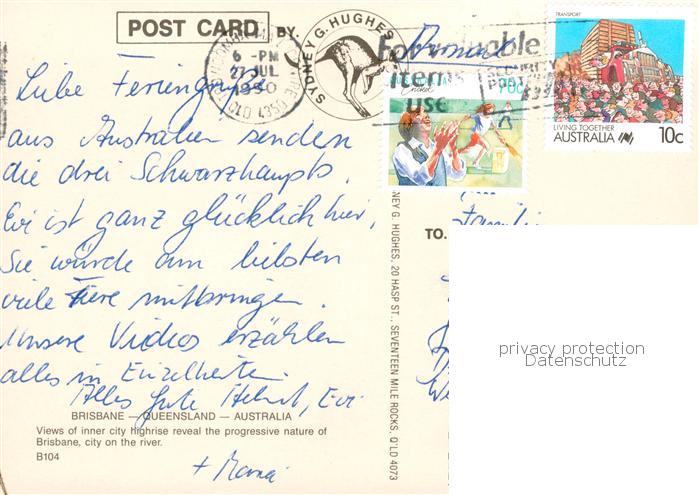 POST CARD BY.
SYDNEY G. HUGHES
6 -PM
27 JUL
QLD 4350
items
use
Cricket
TRANSPORT
LIVING TOGETHER
AUSTRALIA 10c
Liebe Feriengrüße
aus Australien senden
die drei Schwarzhaupts.
Evi ist ganz glücklich hier,
Sie würde am liebsten
viele Tiere mitbringen.
Unsere Videos erzählen
alles in Einzelheiten.
Alles Gute Helmut, Evi
+ Maria
BRISBANE — QUEENSLAND — AUSTRALIA
Views of inner city highrise reveal the progressive nature of
Brisbane, city on the river.
B104
NEY G. HUGHES, 20 HASP ST., SEVENTEEN MILE ROCKS, Q'LD 4073
TO.
Familie
privacy protection
Datenschutz